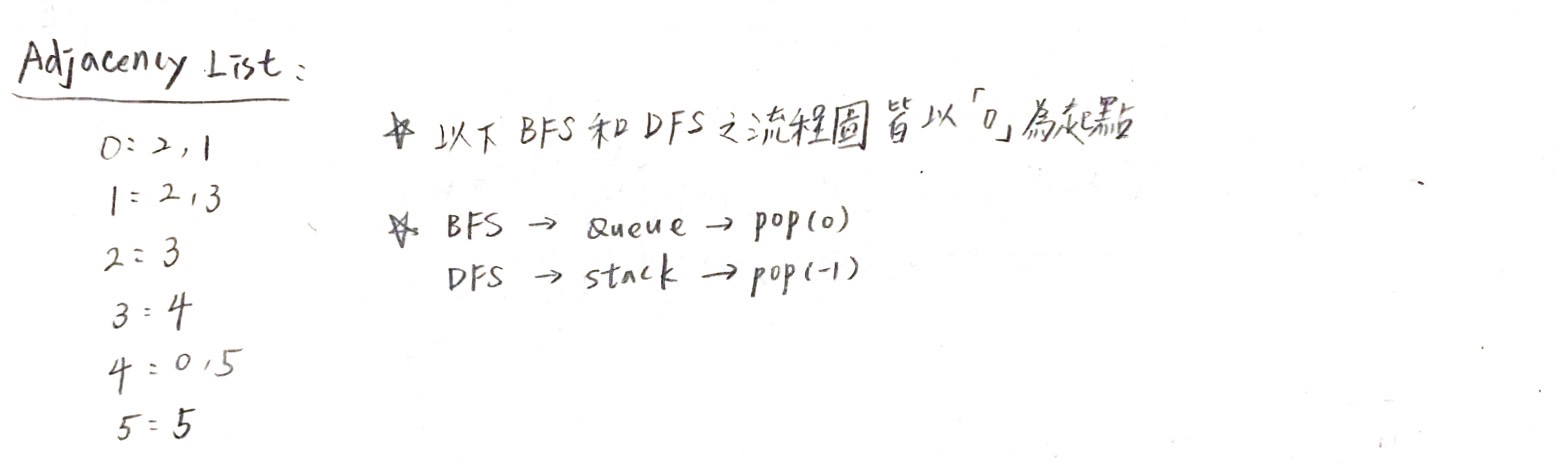 Adjacency List :
0: 2, 1
1: 2, 3
2: 3
3: 4
4: 0, 5
5: 5
☆ 以下 BFS 和 DFS 之流程圖皆以「0」為起點
☆ BFS → Queue → pop(0)
DFS → stack → pop(-1)